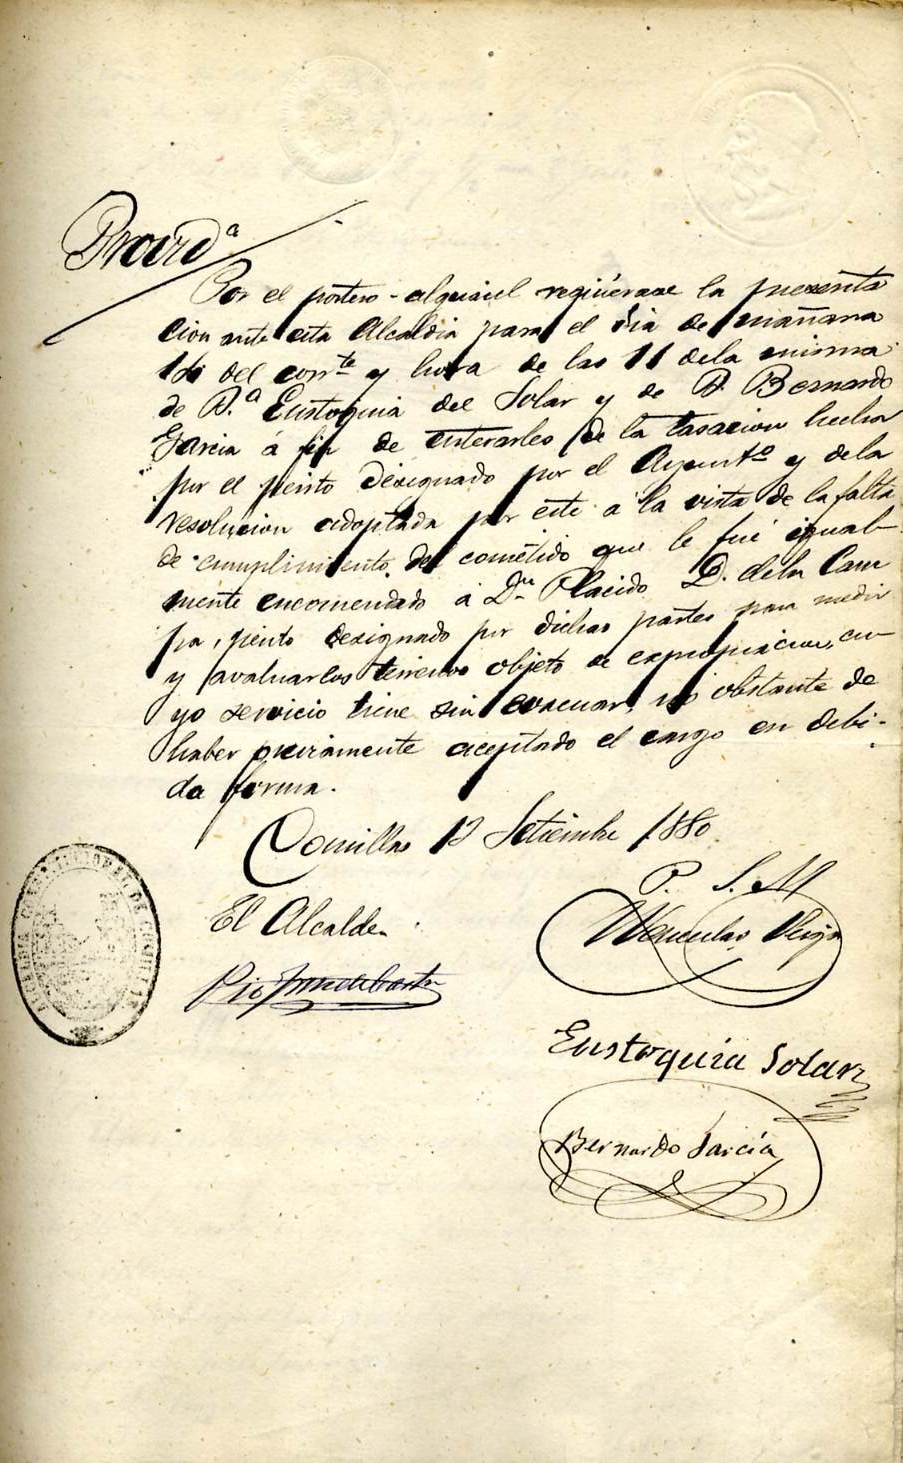 Provid.ª
Por el portero-alguacil requiérase la presenta
cion ante esta Alcaldia para el dia de mañana
14 del corr.te y hora de las 11 de la misma
de D.ª Eustoquia del Solar y de D. Bernardo
Garcia á fin de enterarles de la tasacion hecha
por el perito designado por el Ayunt.º y de la
resolucion adoptada por este á la vista de la falta
de cumplimiento del cometido que le fué igual-
mente encomendado á D.n Placido D. de la Cam
pa, perito designado por dichas partes para medir
y avaluar los terrenos objeto de expropiacion, cu-
yo servicio tiene sin evacuar, no obstante de
haber previamente aceptado el cargo en debi-
da forma.
Comillas 13 Setiembre 1880.
P. S. M
El Alcalde.
Wenceslao
Pio
Eustoquia Solar
Bernardo Garcia